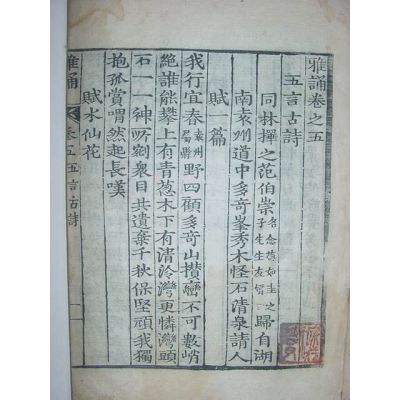 雅誦卷之五
五言古詩
同林擇之范伯崇名念德如圭之子先生友壻歸自湖
南袁州道中多奇峯秀木怪石清泉請人
賦一篇
我行宜春袁州屬縣野四顧多奇山攢巒不可數峭
絕誰能攀上有青葱木下有清泠灣更憐灣頭
石一一神所剜衆目共遺棄千秋保堅頑我獨
抱孤賞喟然起長嘆
賦水仙花
雅誦 卷五 五言古詩 一